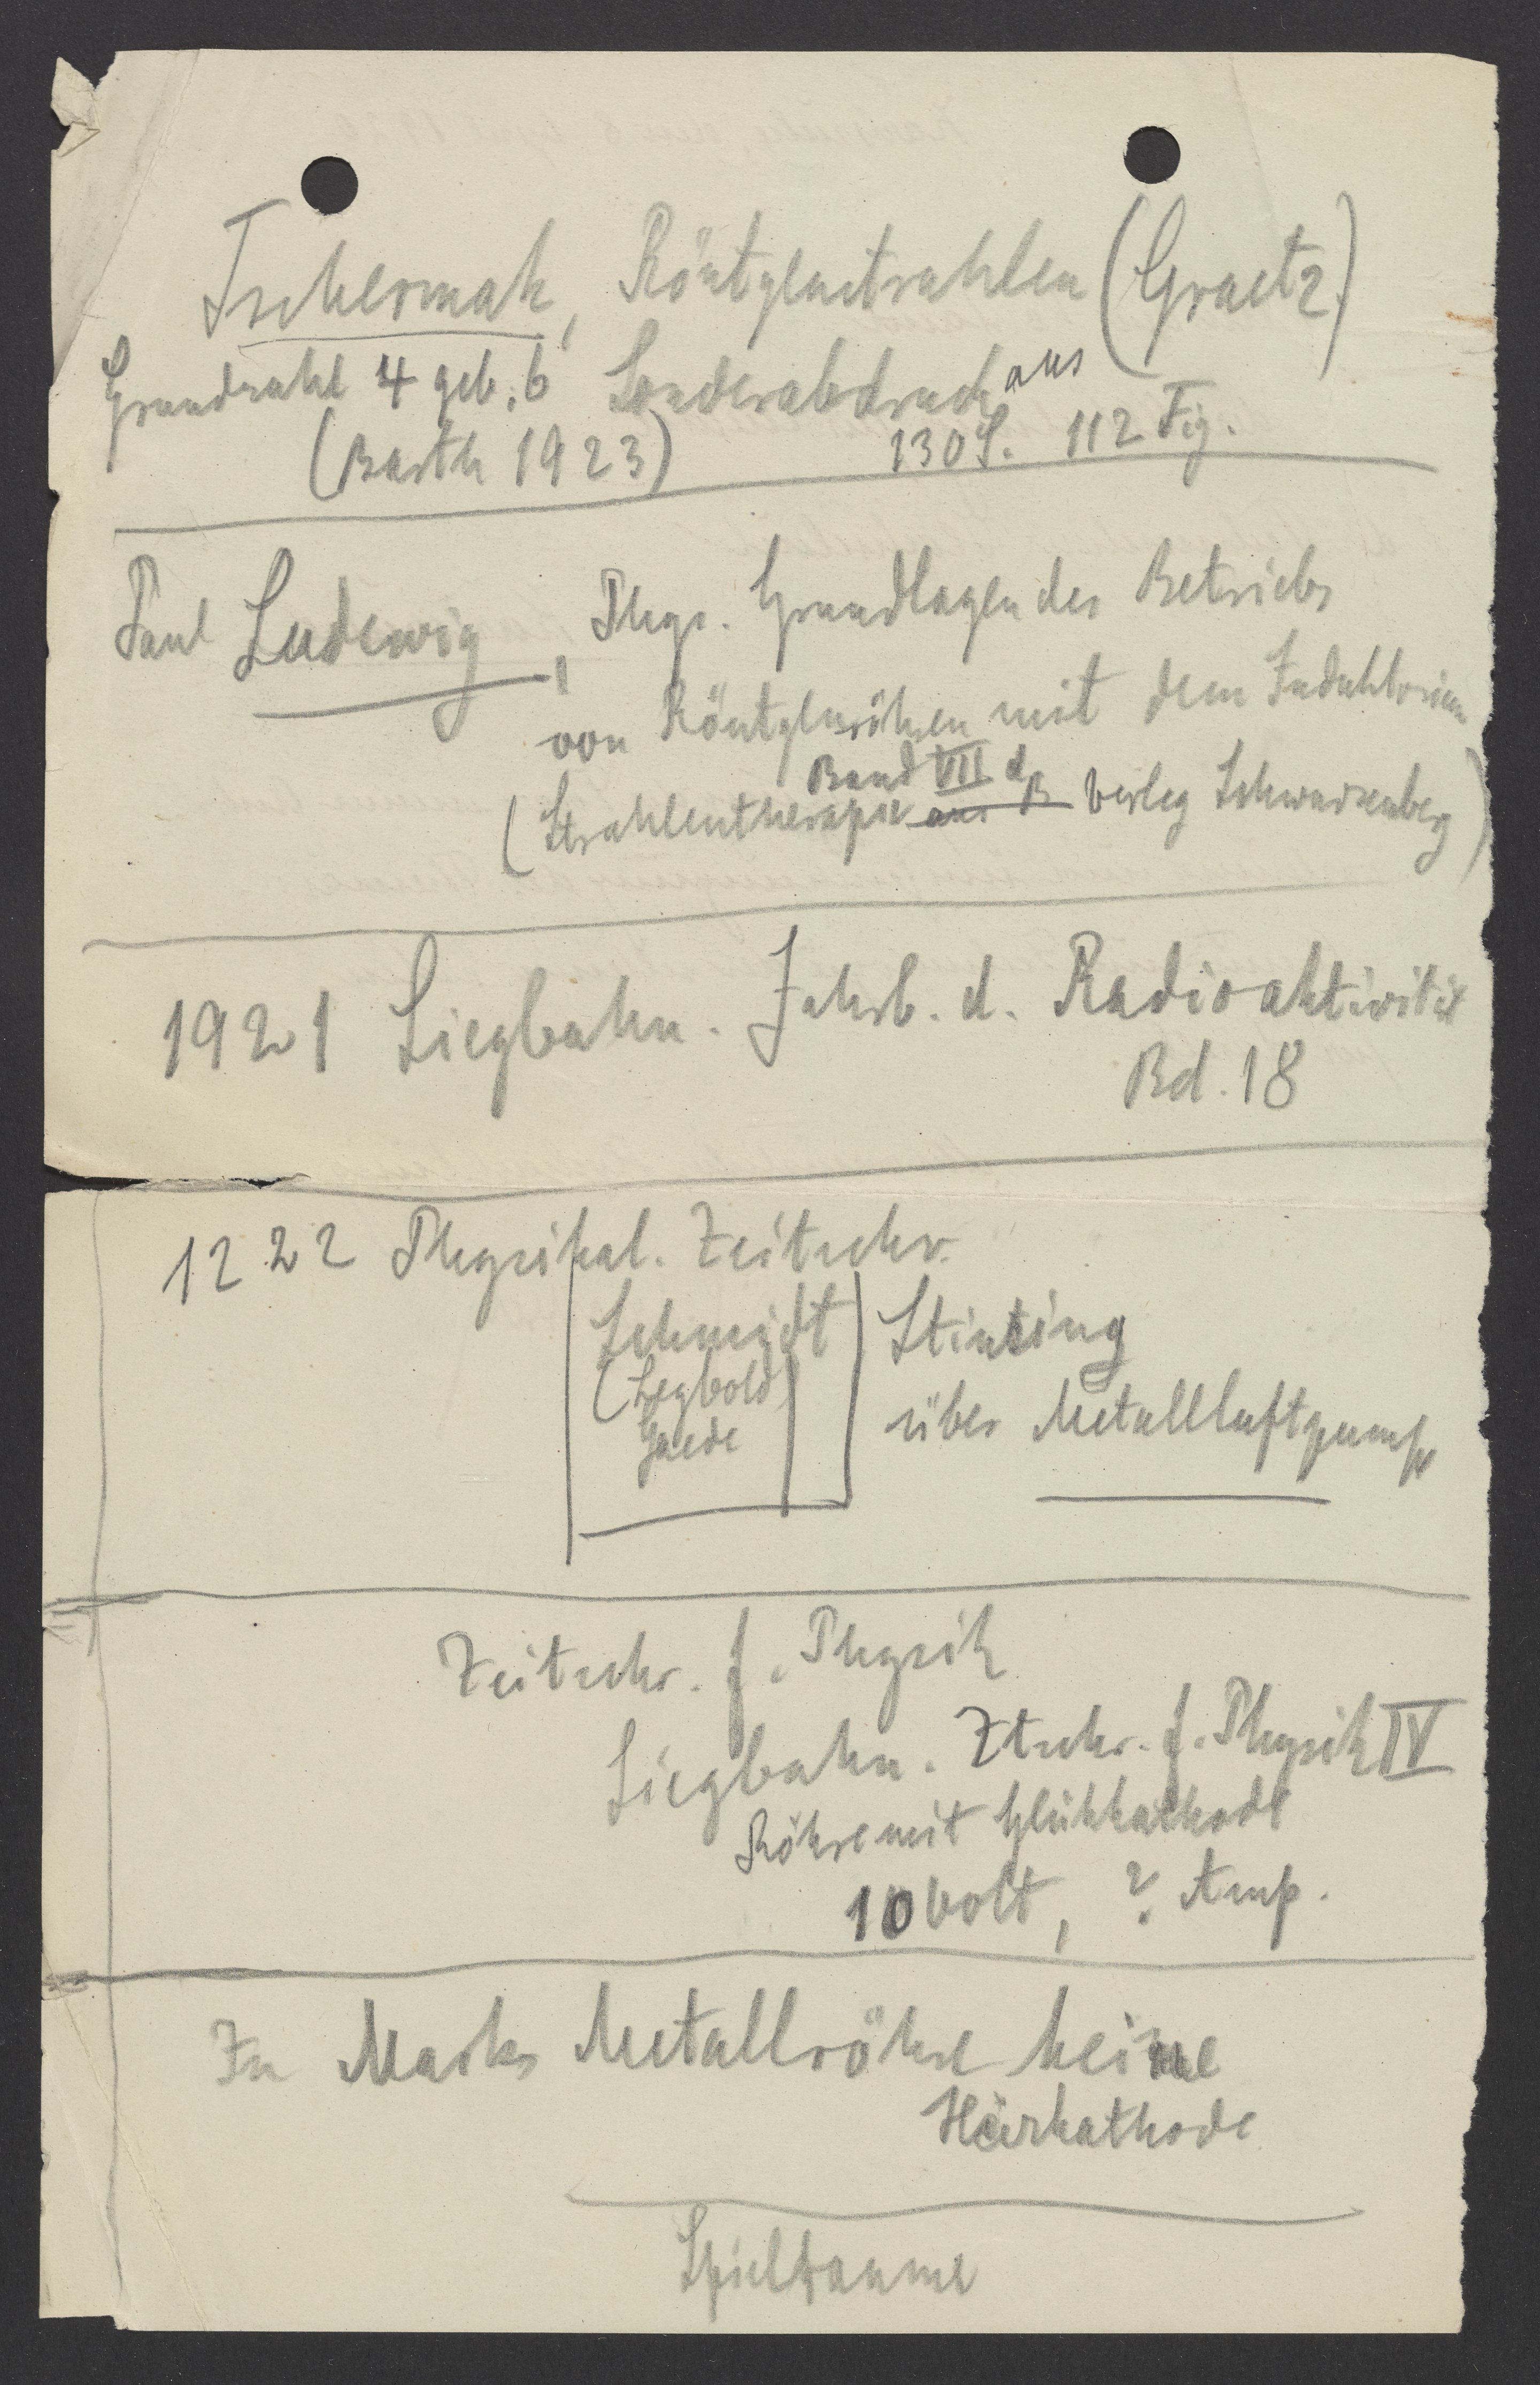 Tschermak, Röntgenstrahlen (Graetz)
Grundzahl 4 geb. 6 Sonderabdruck aus
(Barth 1923) 130 S. 112 Fig.
Paul Ludewig, Phys. Grundlagen des Betriebs
von Röntgenröhren mit dem Induktorium
Band VII d
(Strahlentherapie aus B Verlag Schwarzenberg)
1921 Siegbahn. Jahrb. d. Radioaktivität
Bd. 18
1222 Physikal. Zeitschr.
Schmidt Stinzing
(Leybold über Metallluftpumpe
Gaede)
Zeitschr. f. Physik
Siegbahn. Ztschr. f. Physik IV
Röhre mit Glühkathode
10 Volt, ? Amp.
In Marks Metallröhre keine
Hörkathode
Spielraume